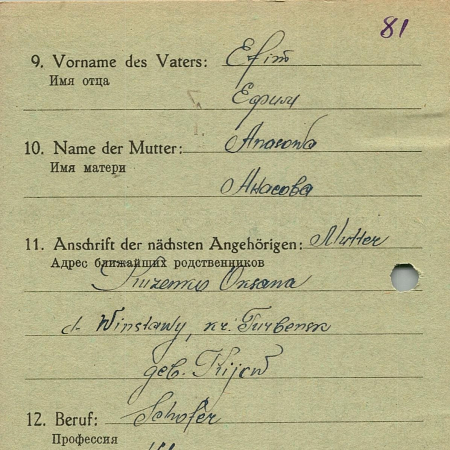 81
9. Vorname des Vaters: Efim
Имя отца
Ефим
10. Name der Mutter:
Имя матери
Анасова
11. Anschrift der nächsten Angehörigen: Mutter
Адрес ближайших родственников
Oksana
d. Winstawy, kr. Turbensk
geb. Kijew
12. Beruf: Schofer
Профессия